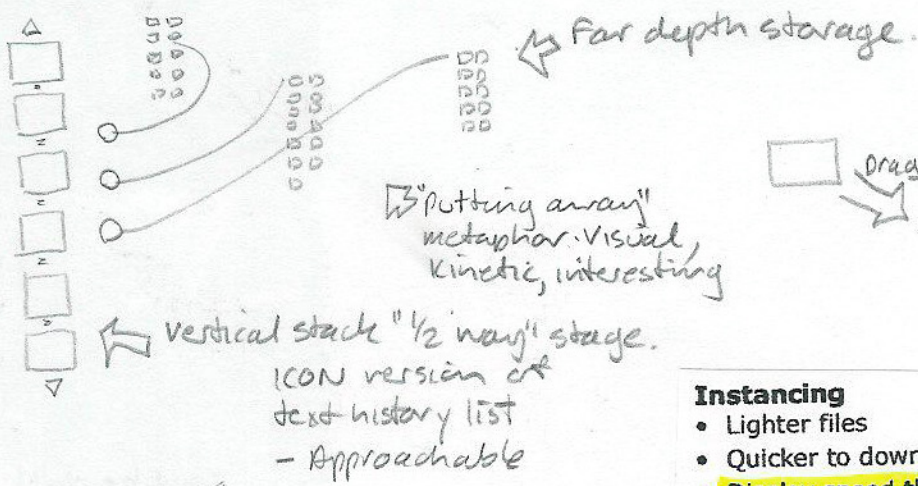 Far depth storage.
Drag
"putting away"
metaphor. Visual,
kinetic, interesting
Vertical stack "1/2 way" stage.
ICON version of
text history list
- Approachable
Instancing
• Lighter files
• Quicker to down